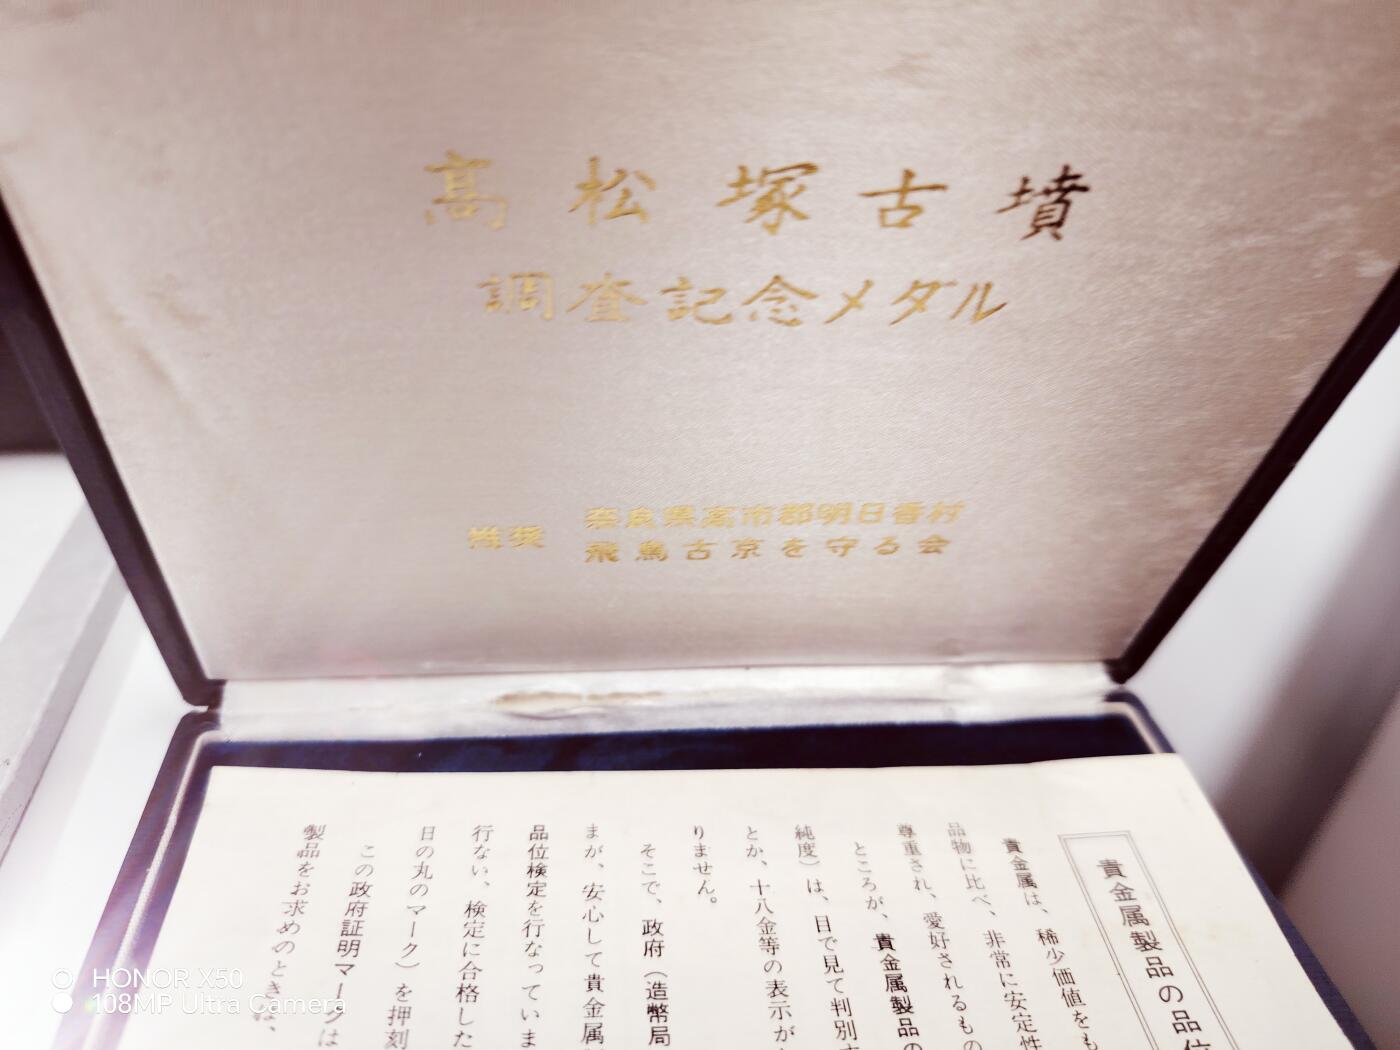 高松塚古墳
調査記念メダル
推奨
奈良県高市郡明日香村
飛鳥古京を守る会
貴金属製品の品位
貴金属は、稀少価値をも
品物に比べ、非常に安定性
尊重され、愛好されるもの
ところが、貴金属製品の
純度）は、目で見て判別す
とか、十八金等の表示が
りません。
そこで、政府（造幣局
まが、安心して貴金属
品位検定を行なっていま
行ない、検定に合格した
日の丸のマーク）を押刻
この政府証明マークは
製品をお求めのときは、
HONOR X50
108MP Ultra Camera